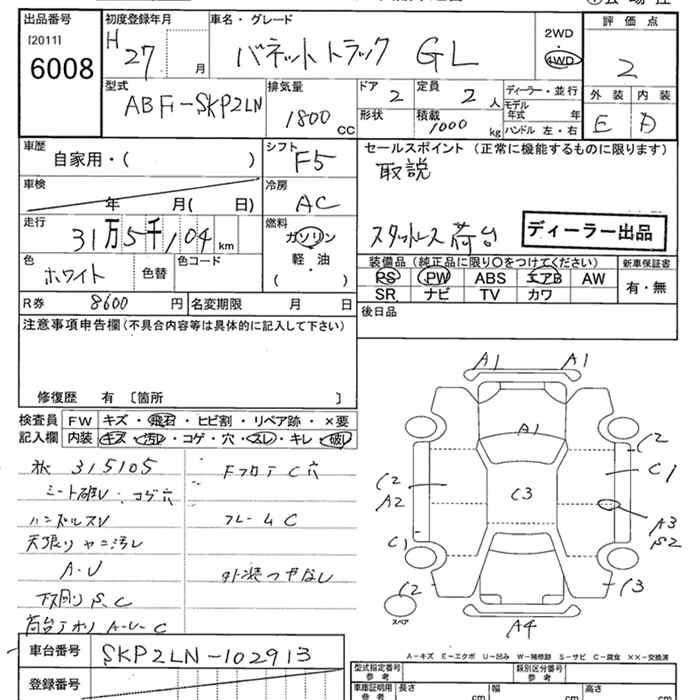 出品番号 [2011] 6008
初度登録年月 H27 月
車名・グレード バネットトラック GL
2WD 4WD
評価点 2
外装 E 内装 D
型式 ABF-SKP2LN
排気量 1800 CC
ドア 2
定員 2 人
形状
積載 1000 kg
ディーラー・並行
モデル年式 年
ハンドル 左・右
車歴 自家用・( )
シフト F5
セールスポイント (正常に機能するものに限ります)
取説
車検 年 月( 日)
冷房 AC
走行 31万5千104 km
燃料 ガソリン・軽・油 ( )
スタッドレス 荷台
ディーラー出品
色 ホワイト 色替 色コード
装備品 (純正品に限り○をつけてください) 新車保証書
PS PW ABS エアB AW 有・無
SR ナビ TV カワ
R券 8600 円 名変期限 月 日
後日品
注意事項申告欄(不具合内容等は具体的に記入して下さい)
修復歴 有 [箇所 ]
検査員記入欄
FW キズ・飛石・ヒビ割・リペア跡・×要
内装 キズ・汚レ・コゲ・穴・スレ・キレ・破レ
315105
シート破レ・コゲ穴
ハンドルスレ
天張りヤニ汚レ
A・U
下廻りS、C
荷台アオリ A-U-C
Fフロア C穴
フレームC
外装つやなし
A1 A1
A1
C2
C1
C2
A2
C3
A3
S2
C1
C2
C3
スペア
A4
車台番号 SKP2LN-102913
登録番号
A-キズ E-エクボ U-凹み W-補修跡 S-サビ C-腐食 ××-交換済
型式指定番号 参考 類別区分番号 参考
車庫証明用 参考 長さ cm 幅 cm 高さ cm